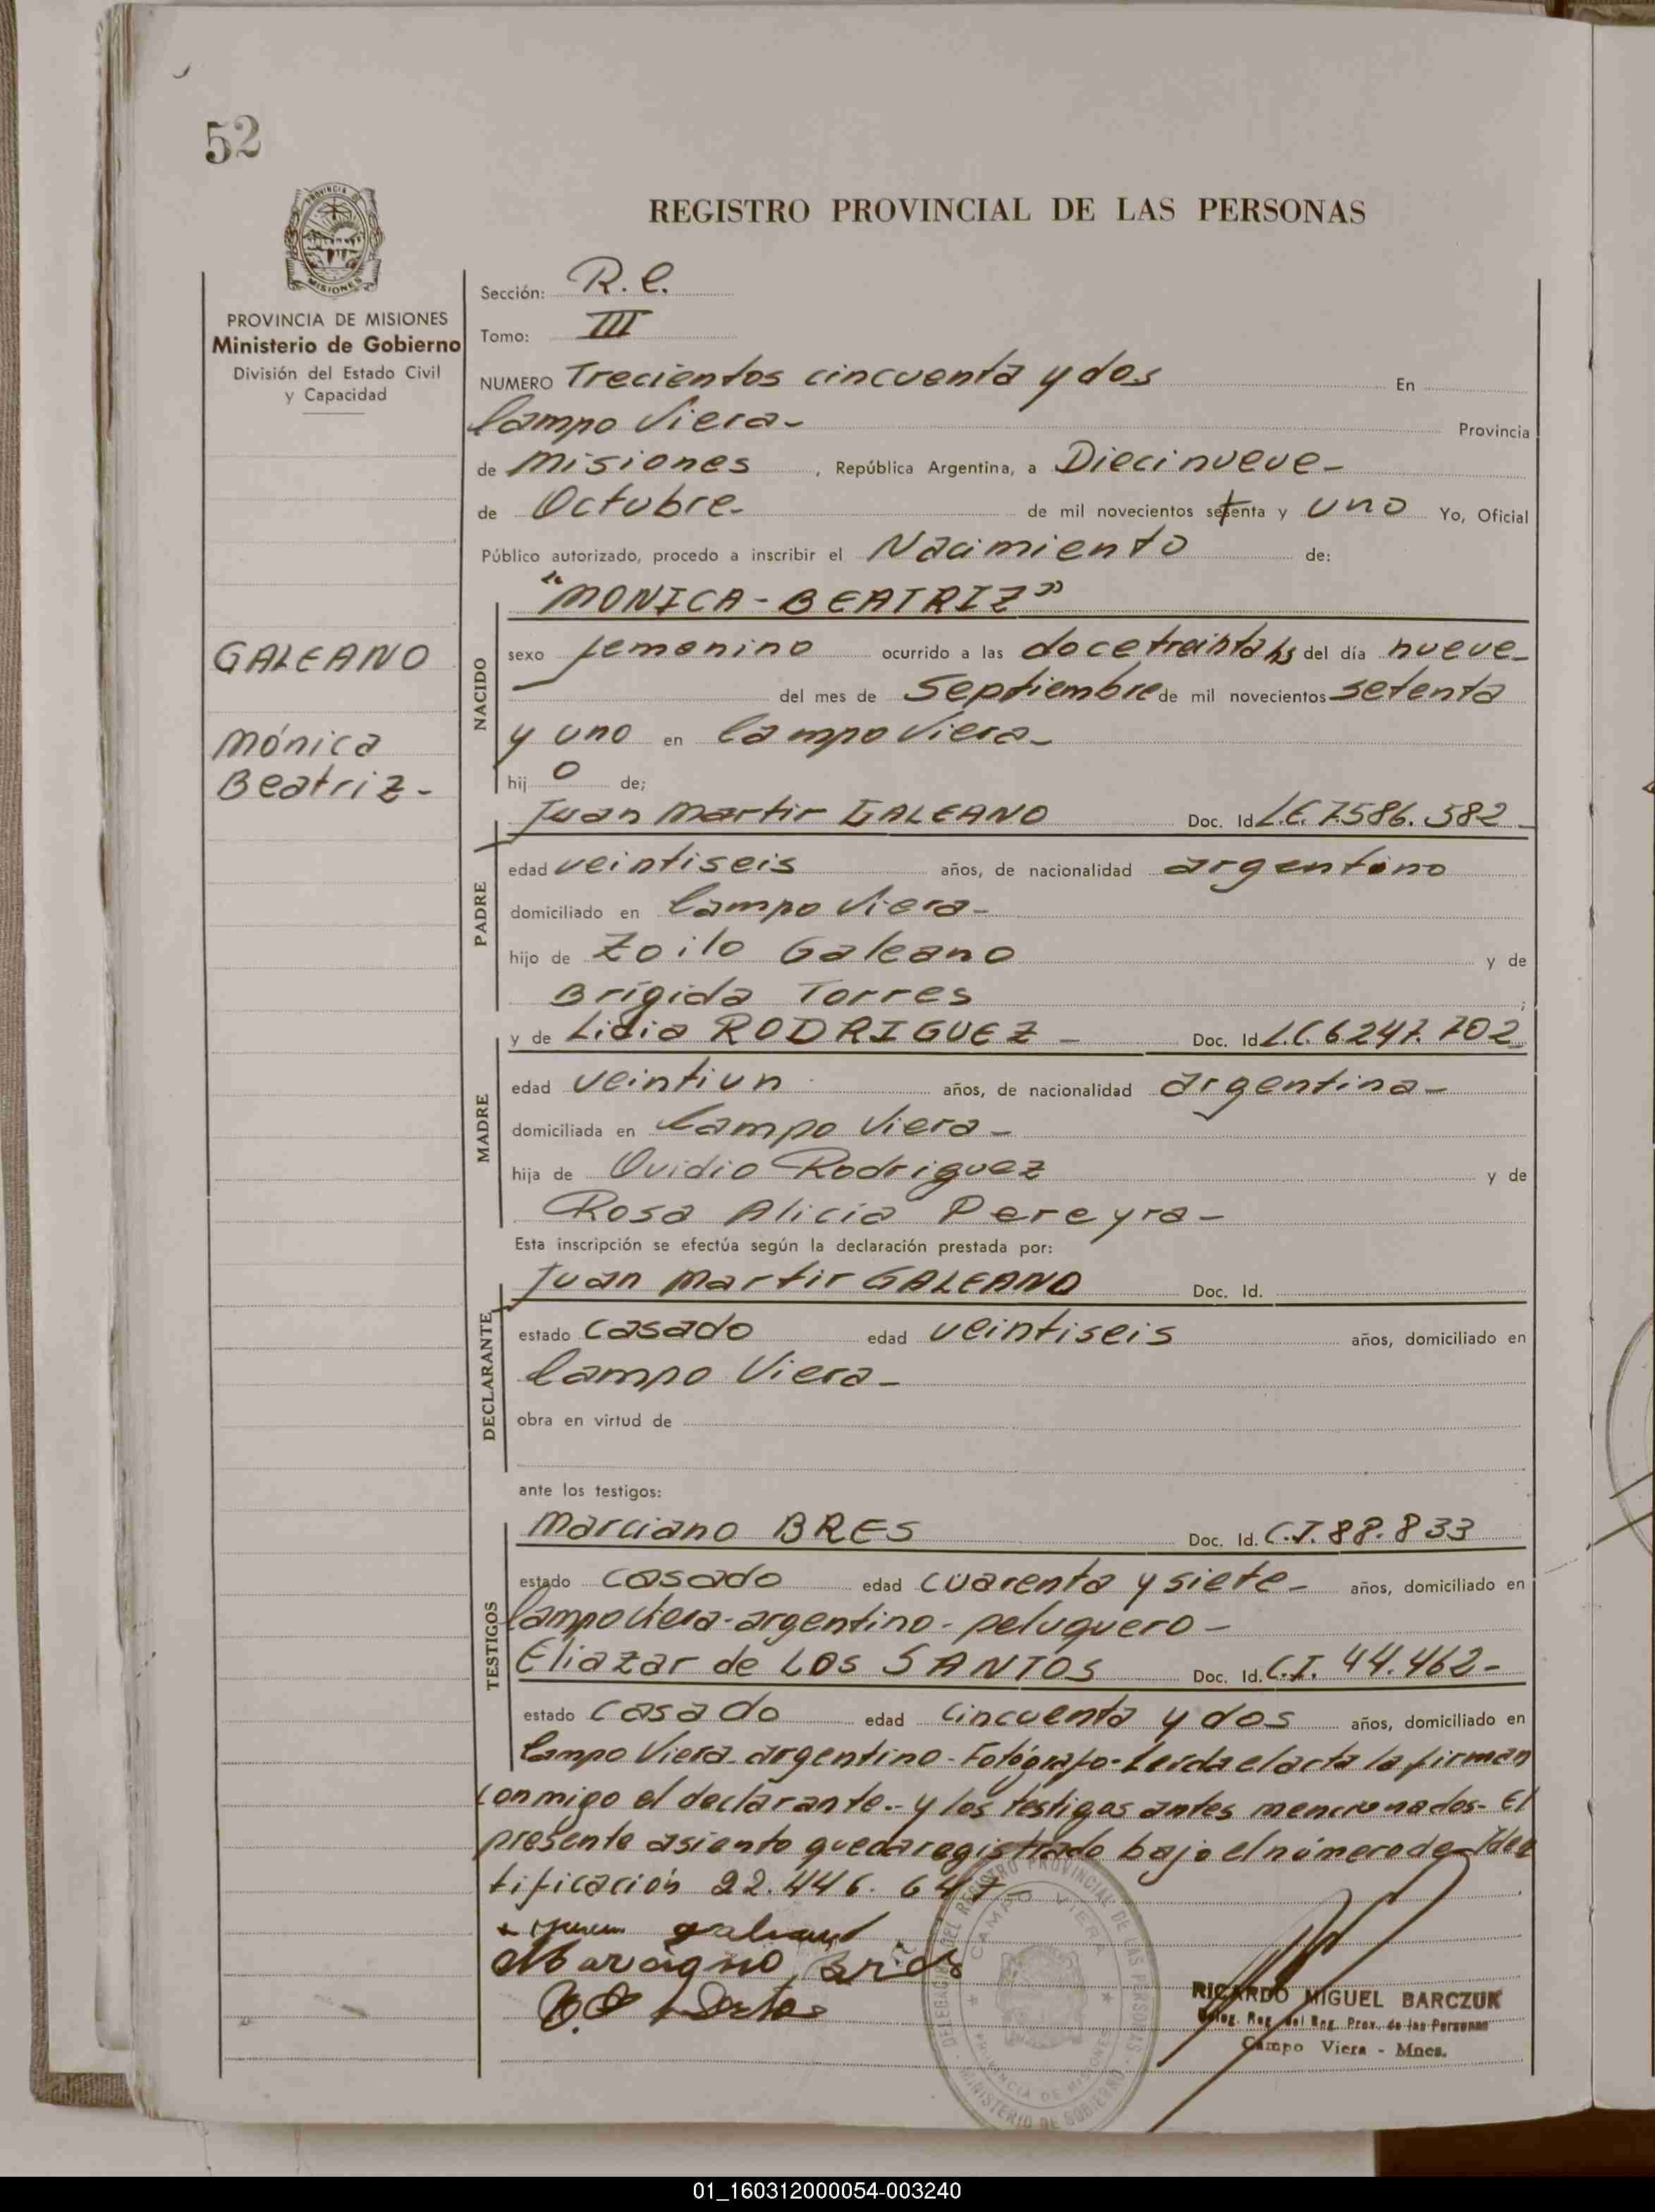 52
PROVINCIA
MISIONES
REGISTRO PROVINCIAL DE LAS PERSONAS
PROVINCIA DE MISIONES
Ministerio de Gobierno
División del Estado Civil
y Capacidad
Sección: R. C.
Tomo: III
NUMERO Trecientos cincuenta y dos En
Campo Viera- Provincia
de Misiones, República Argentina, a Diecinueve-
de Octubre- de mil novecientos setenta y uno Yo, Oficial
Público autorizado, procedo a inscribir el Nacimiento de:
"MONICA-BEATRIZ"
GALEANO
Mónica
Beatriz-
NACIDO
sexo femenino ocurrido a las doce treinta hs del día nueve-
del mes de Septiembre de mil novecientos setenta
y uno en Campo Viera-
hij o de;
PADRE
Juan Martir GALEANO Doc. Id L.E. 7.586.582-
edad veintiseis años, de nacionalidad argentino
domiciliado en Campo Viera-
hijo de Zoilo Galeano y de
Brígida Torres ;
MADRE
y de Lidia RODRIGUEZ - Doc. Id L.C. 6.247.702-
edad veintiun años, de nacionalidad argentina-
domiciliada en Campo Viera-
hija de Ovidio Rodriguez y de
Rosa Alicia Pereyra-
Esta inscripción se efectúa según la declaración prestada por:
DECLARANTE
Juan Martir GALEANO Doc. Id.
estado casado edad veintiseis años, domiciliado en
Campo Viera-
obra en virtud de
ante los testigos:
TESTIGOS
Marciano BRES Doc. Id. C.I. 88.833
estado casado edad cuarenta y siete- años, domiciliado en
Campo Viera-argentino-peluquero-
Eliazar de LOS SANTOS Doc. Id. C.I. 44.462-
estado casado edad cincuenta y dos años, domiciliado en
Campo Viera-argentino-Fotógrafo-Leída el acta la firman
conmigo el declarante.- y los testigos antes mencionados- El
presente asiento queda registrado bajo el número de Iden
tificación 22.446.647-
DELEGACION DEL REGISTRO PROVINCIAL DE LAS PERSONAS
CAMPO VIERA
PROVINCIA DE MISIONES
MINISTERIO DE GOBIERNO
RICARDO MIGUEL BARCZUK
Deleg. Reg. del Reg. Prov. de las Personas
Campo Viera - Mnes.
01_160312000054-003240